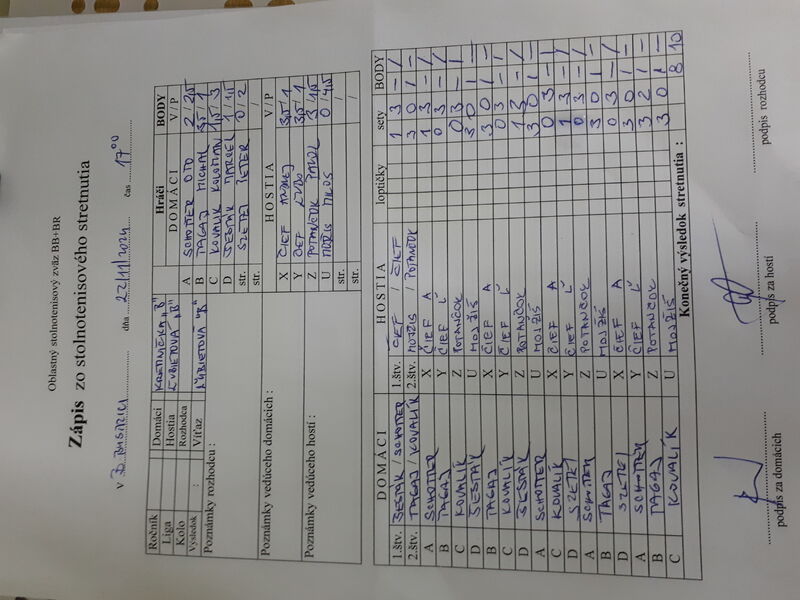 Oblastný stolnotenisový zväz BB+BR
Zápis zo stolnotenisového stretnutia
v B. BYSTRICI dňa 22/11/2024 čas 17⁰⁰
Ročník Domáci
Liga Hostia ĽUBIETOVÁ "B"
Kolo Rozhodca
Výsledok : Víťaz ĽUBIETOVÁ "B"
Poznámky rozhodcu :
Poznámky vedúceho domácich :
Poznámky vedúceho hostí :
Hráči BODY
DOMÁCI V/P
A SCHOTTER OTO 2/2,5
B TAGAJ MICHAL 3,5/1
C KOVALÍK KOLOMAN 1,5/3
D MARCEL 1/1,5
str. PETER 0/2
str. /
HOSTIA V/P
X ČIEF ANDREJ 3,5/1
Y ČIEF ĽUBO 3,5/1
Z POTANČOK PAVOL 3/1,5
U MILOŠ 0/4,5
str. /
str. /
DOMÁCI HOSTIA loptičky sety BODY
1.štv. / SCHOTTER 1.štv. ČIEF / ČIEF 1 3 - /
2.štv. TAGAJ / KOVALÍK 2.štv. / POTANČOK 3 0 / -
A SCHOTTER X ČIEF A 1 3 - /
B TAGAJ Y ČIEF Ľ 0 3 - /
C KOVALÍK Z POTANČOK 0 3 - /
D U MOJŽIŠ 3 0 1 -
B TAGAJ X ČIEF A 3 0 1 -
C KOVALÍK Y ČIEF Ľ 0 3 - /
D Z POTANČOK 1 3 - /
A SCHOTTER U MOJŽIŠ 3 0 1 -
C KOVALÍK X ČIEF A 0 3 - 1
D Y ČIEF Ľ 1 3 - /
A SCHOTTER Z POTANČOK 0 3 - /
B TAGAJ U MOJŽIŠ 3 0 1 -
D X ČIEF A 0 3 - /
A SCHOTTER Y ČIEF Ľ 3 0 1 -
B TAGAJ Z POTANČOK 3 2 1 -
C KOVALÍK U MOJŽIŠ 3 0 1 -
Konečný výsledok stretnutia : 8 10
podpis za domácich podpis za hostí podpis rozhodcu